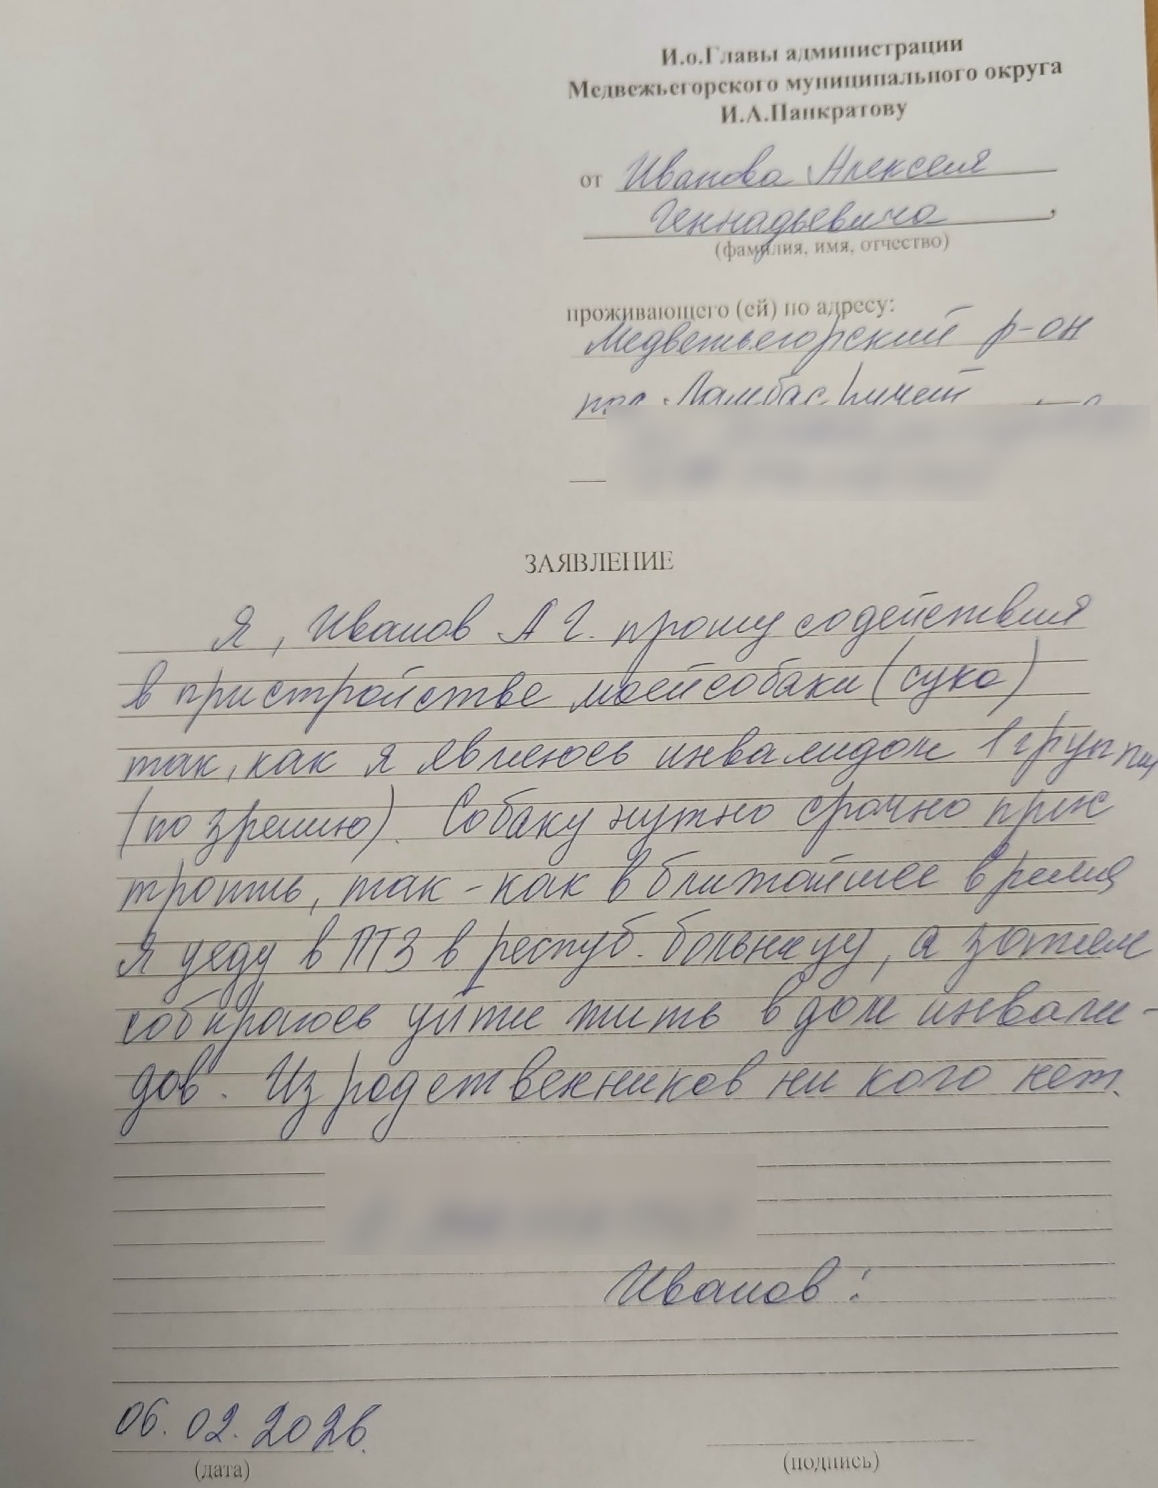 И.о.Главы администрации
Медвежьегорского муниципального округа
И.А.Панкратову
от Иванова Алексея
Геннадьевича,
(фамилия, имя, отчество)
проживающего (ей) по адресу:
Медвежьегорский р-он
ЗАЯВЛЕНИЕ
Я, Иванов А Г. прошу содействия
в пристройстве моей собаки (сука)
так, как я являюсь инвалидом 1 группы
(по зрению). Собаку нужно срочно прис
троить, так-как в ближайшее время
я уеду в ПТЗ в респуб. больницу, а затем
собираюсь уйти жить в дом инвали-
дов. Из родственников ни кого нет.
Иванов:
06.02.2026.
(дата)
(подпись)